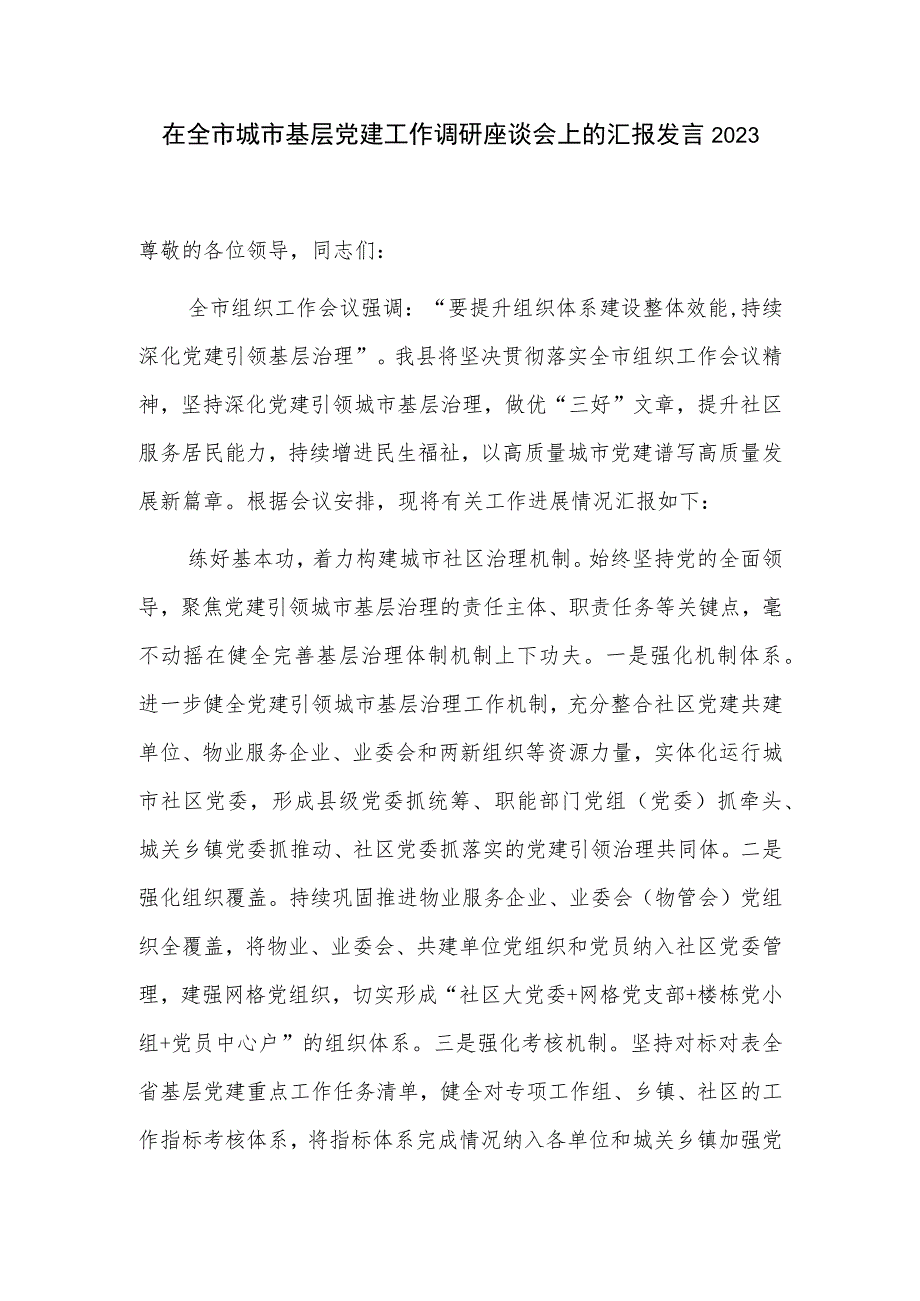 在全市城市基层党建工作调研座谈会上的汇报发言 2023
尊敬的各位领导，同志们：
全市组织工作会议强调：“要提升组织体系建设整体效能,持续
深化党建引领基层治理”。我县将坚决贯彻落实全市组织工作会议精
神，坚持深化党建引领城市基层治理，做优“三好”文章，提升社区
服务居民能力，持续增进民生福祉，以高质量城市党建谱写高质量发
展新篇章。根据会议安排，现将有关工作进展情况汇报如下：
练好基本功，着力构建城市社区治理机制。始终坚持党的全面领
导，聚焦党建引领城市基层治理的责任主体、职责任务等关键点，毫
不动摇在健全完善基层治理体制机制上下功夫。一是强化机制体系。
进一步健全党建引领城市基层治理工作机制，充分整合社区党建共建
单位、物业服务企业、业委会和两新组织等资源力量，实体化运行城
市社区党委，形成县级党委抓统筹、职能部门党组（党委）抓牵头、
城关乡镇党委抓推动、社区党委抓落实的党建引领治理共同体。二是
强化组织覆盖。持续巩固推进物业服务企业、业委会（物管会）党组
织全覆盖，将物业、业委会、共建单位党组织和党员纳入社区党委管
理，建强网格党组织，切实形成“社区大党委+网格党支部+楼栋党小
组+党员中心户”的组织体系。三是强化考核机制。坚持对标对表全
省基层党建重点工作任务清单，健全对专项工作组、乡镇、社区的工
作指标考核体系，将指标体系完成情况纳入各单位和城关乡镇加强党